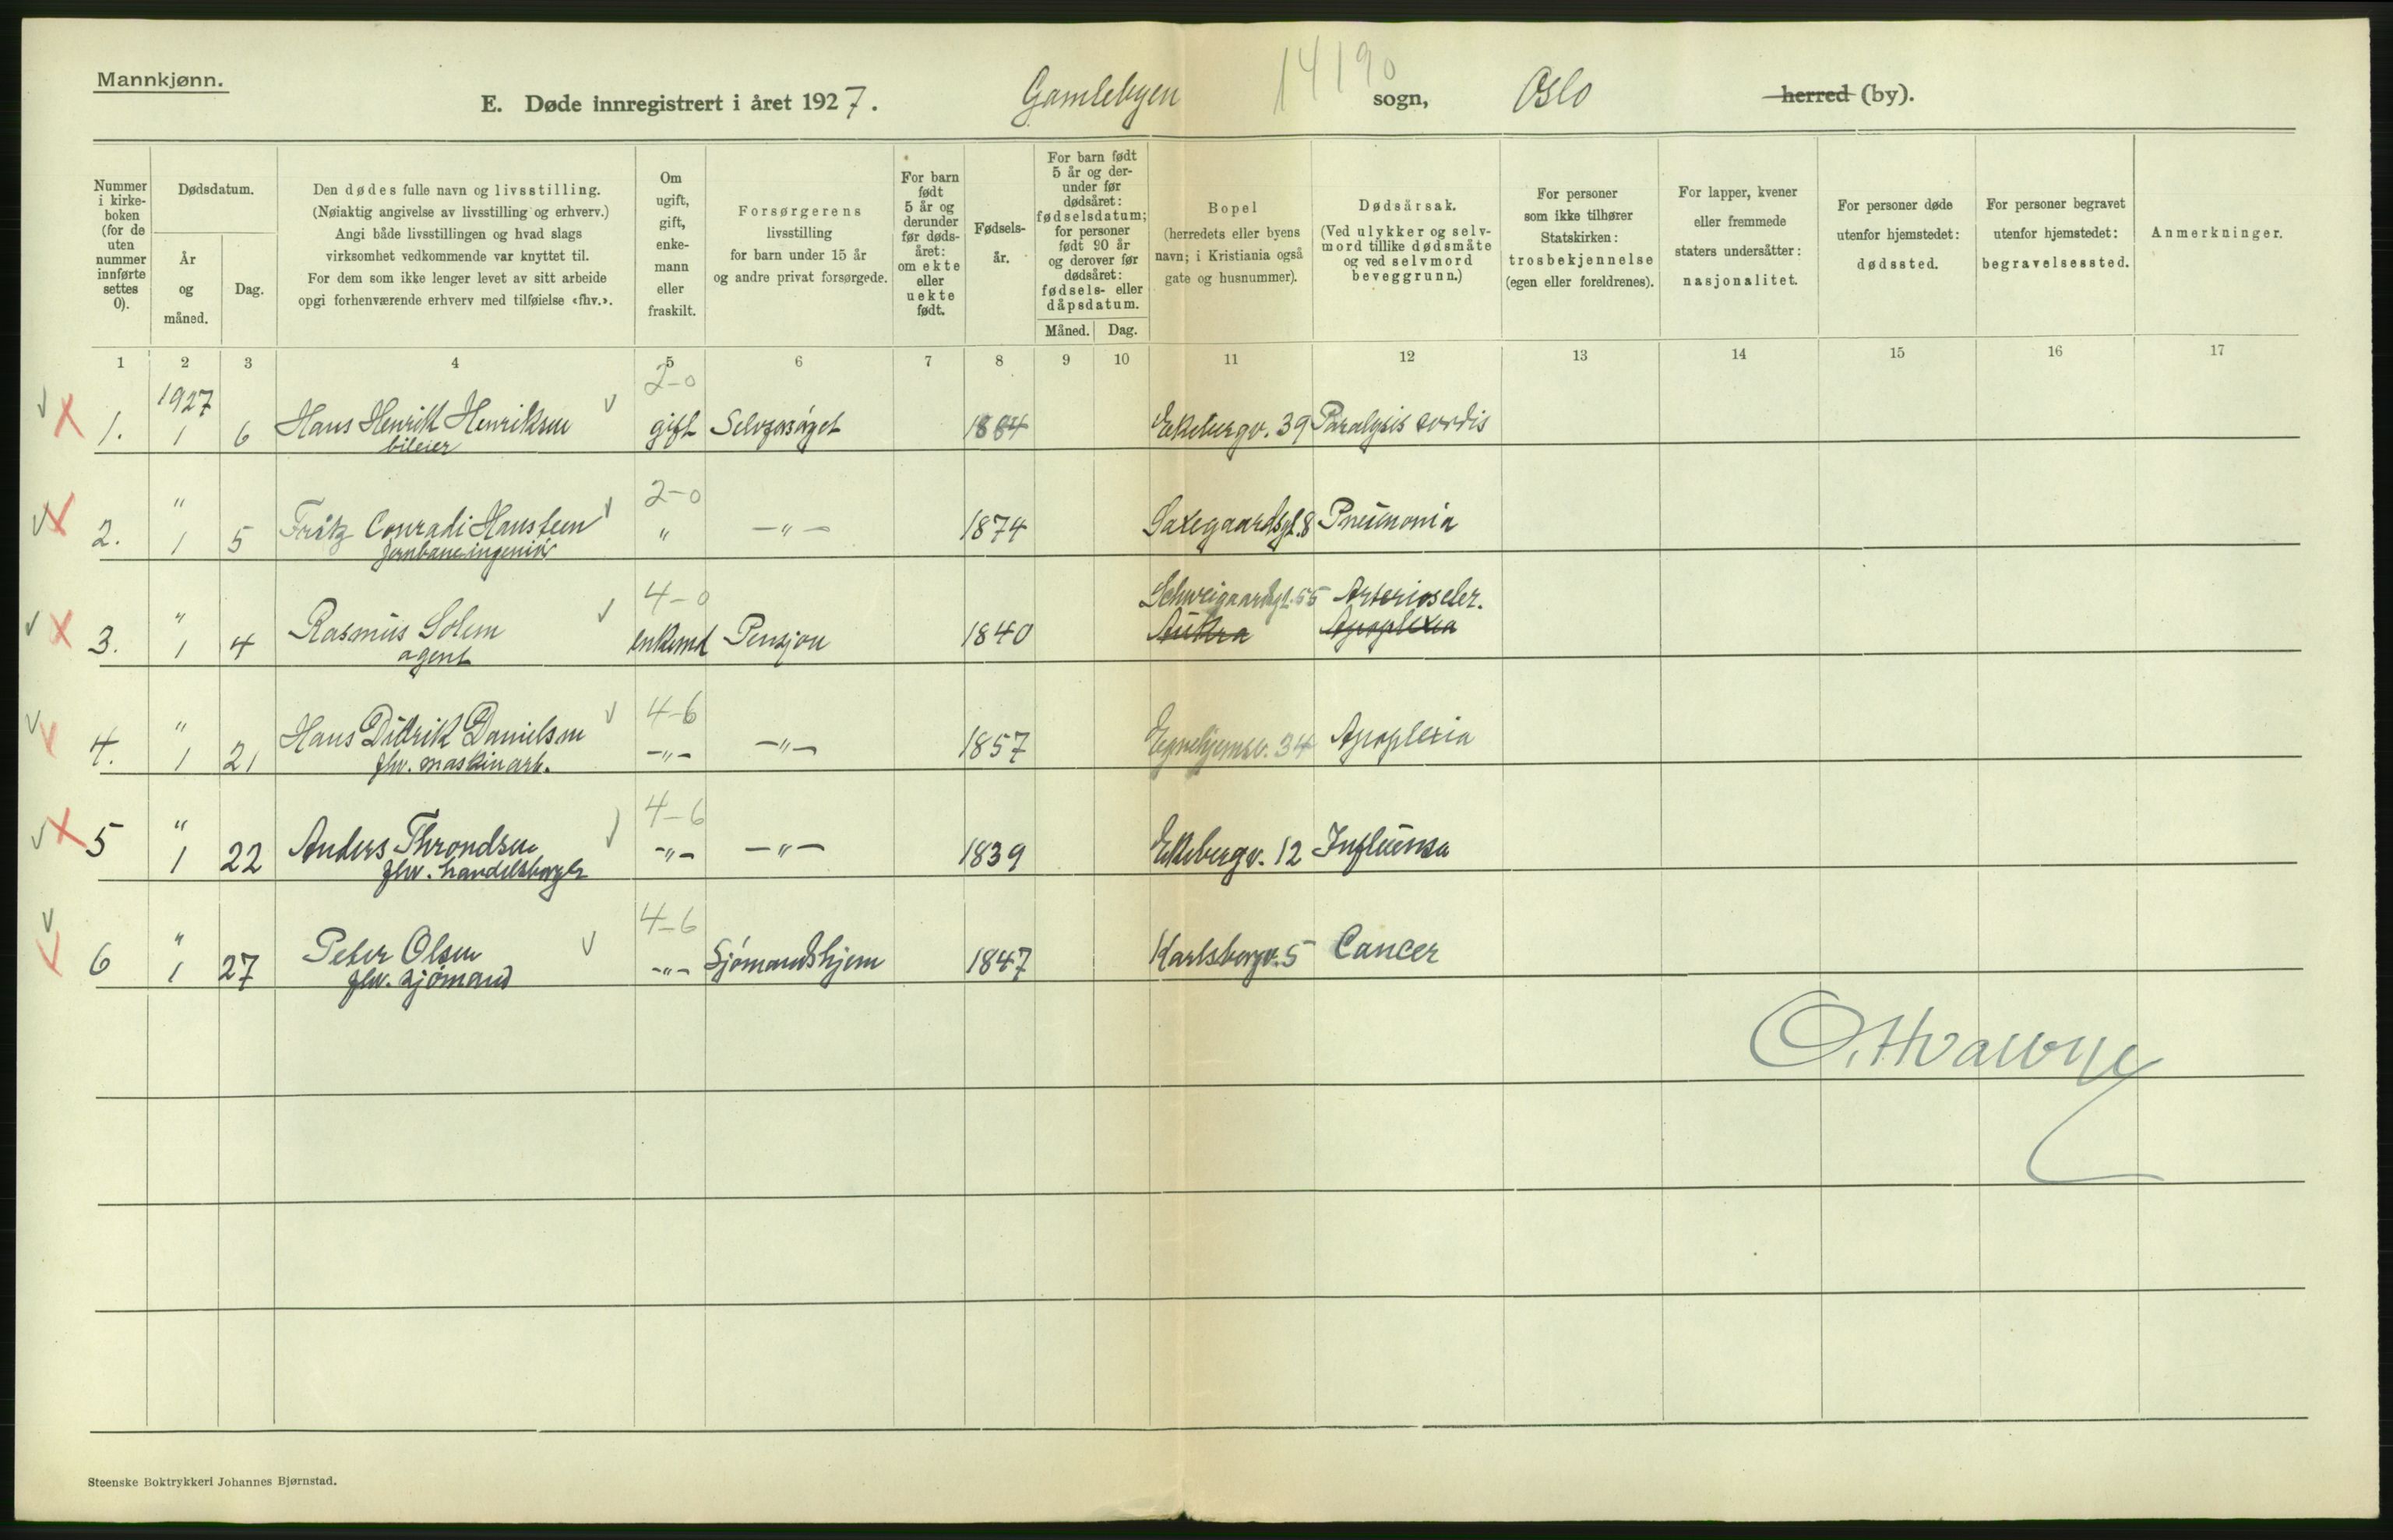 Mannkjønn.
14190
E. Døde innregistrert i året 1927. Gamlebyen sogn, Oslo herred (by).
Nummer i kirkeboken (for de uten nummer innførte settes 0).
Dødsdatum.
År og måned.
Dag.
Den dødes fulle navn og livsstilling.
(Nøiaktig angivelse av livsstilling og erhverv.)
Angi både livsstillingen og hvad slags
virksomhet vedkommende var knyttet til.
For dem som ikke lenger levet av sitt arbeide
opgi forhenværende erhverv med tilføielse «fhv.».
Om ugift, gift, enkemann eller fraskilt.
Forsørgerens
livsstilling
for barn under 15 år
og andre privat forsørgede.
For barn født 5 år og derunder før dødsåret: om ekte eller uekte født.
Fødselsår.
For barn født 5 år og derunder før dødsåret: fødselsdatum; for personer født 90 år og derover før dødsåret: fødsels- eller dåpsdatum.
Måned. Dag.
Bopel
(herredets eller byens
navn; i Kristiania også
gate og husnummer).
Dødsårsak.
(Ved ulykker og selvmord tillike dødsmåte og ved selvmord beveggrunn.)
For personer
som ikke tilhører
Statskirken:
trosbekjennelse
(egen eller foreldrenes).
For lapper, kvener
eller fremmede
staters undersåtter:
nasjonalitet.
For personer døde
utenfor hjemstedet:
dødssted.
For personer begravet
utenfor hjemstedet:
begravelsessted.
Anmerkninger.
1 2 3 4 5 6 7 8 9 10 11 12 13 14 15 16 17
1927 2-0
1. 1 6 Hans Henrik Henriksen gift Selvforsørget 1884 Ekebergv. 39 Paralysis cordis
bileier
" 2-0
2. 1 5 Fritz Conradi Hansteen " -"- 1874 Saxegaardsgt. 8 Pneumonia
jernbaneingeniør
" 4-0 Schweigaardsgt. 55 Arterioscler.
3. 1 4 Rasmus Solem enkemd Pensjon 1840 Aukra Apoplexia
agent
" 4-6
4. 1 21 Hans Didrik Danielsen -"- -"- 1857 Egnehjemsv. 34 Apoplexia
fhv. maskinarb.
" 4-6
5 1 22 Anders Throndsen -"- -"- 1839 Ekebergv. 12 Influensa
fhv. handelsborger
" 4-6
6 1 27 Peter Olsen -"- Sjømandshjem 1847 Karlsborgv. 5 Cancer
fhv. sjømand
Steenske Boktrykkeri Johannes Bjørnstad.